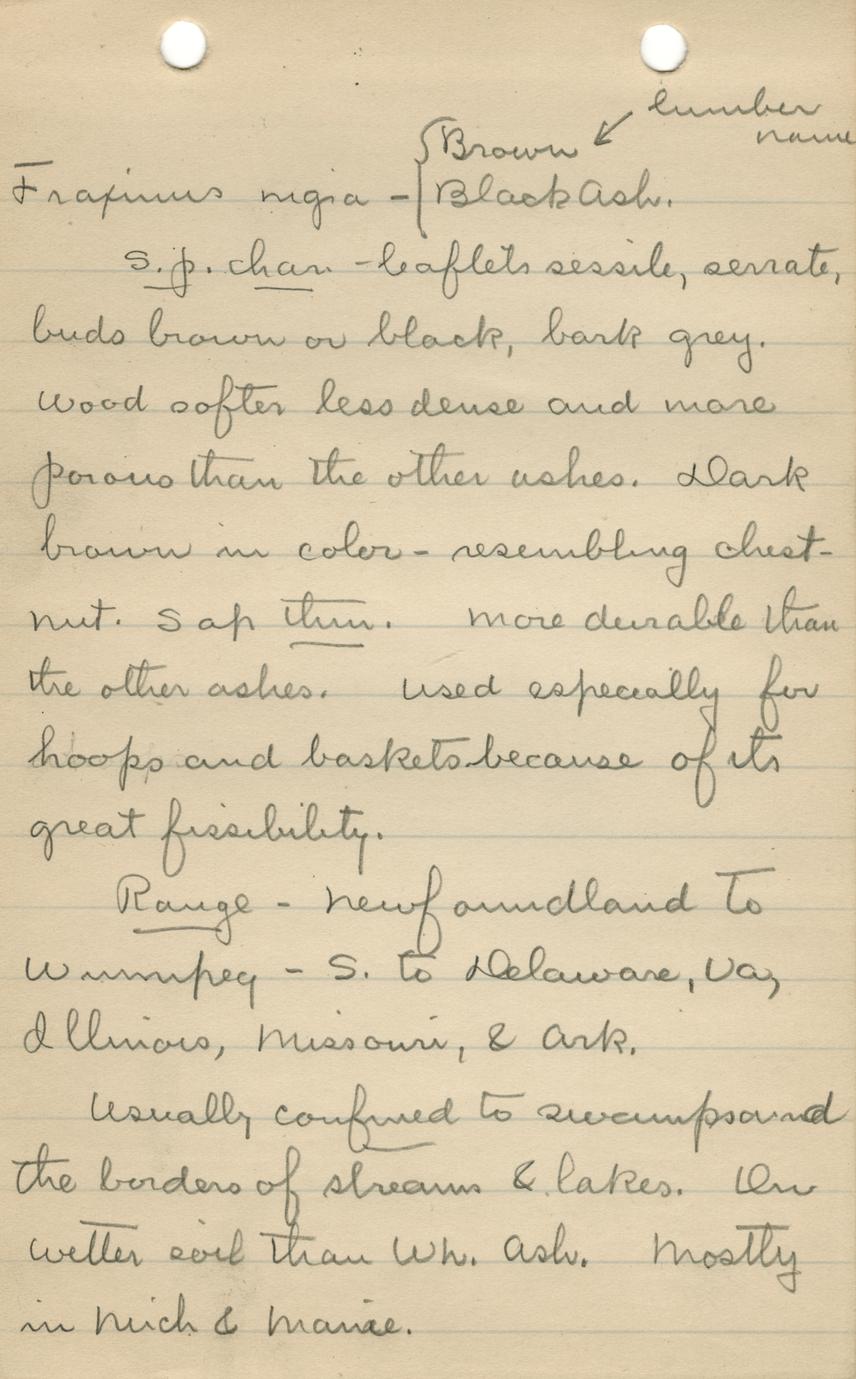 lumber
name
Brown
Fraxinus nigra - Black Ash.
S.p. char. - leaflets sessile, serrate,
buds brown or black, bark grey.
Wood softer less dense and more
porous than the other ashes. Dark
brown in color - resembling chest-
nut. Sap thin. More durable than
the other ashes. Used especially for
hoops and baskets because of its
great fissibility.
Range - Newfoundland to
Winnipeg - S. to Delaware, Va,
Illinois, Missouri, & Ark.
Usually confined to swamps and
the borders of streams & lakes. On
wetter soil than Wh. Ash. Mostly
in Mich & Maine.